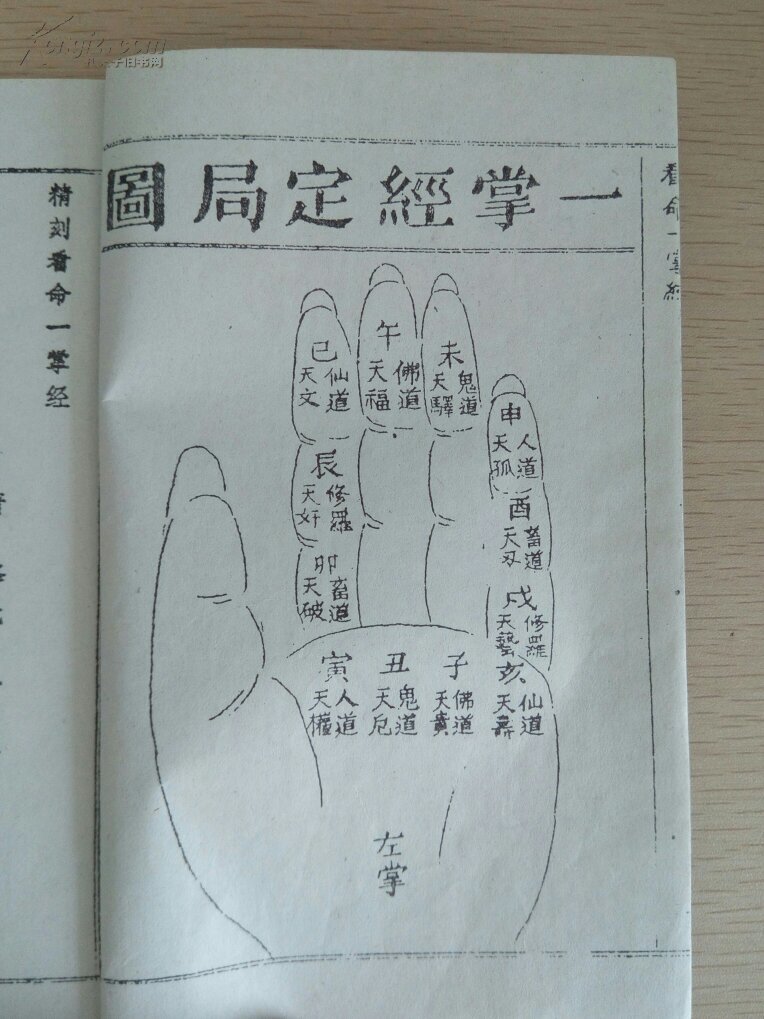 Kongfz.com
孔夫子旧书网
一掌經定局圖
看命一掌經
午
佛道
天福
巳
仙道
天文
未
鬼道
天驛
申
人道
天孤
辰
修羅
天奸
酉
畜道
天刃
卯
畜道
天破
戌
修羅
天藝
亥
仙道
天壽
子
佛道
天貴
丑
鬼道
天厄
寅
人道
天權
左掌
精刻看命一掌经